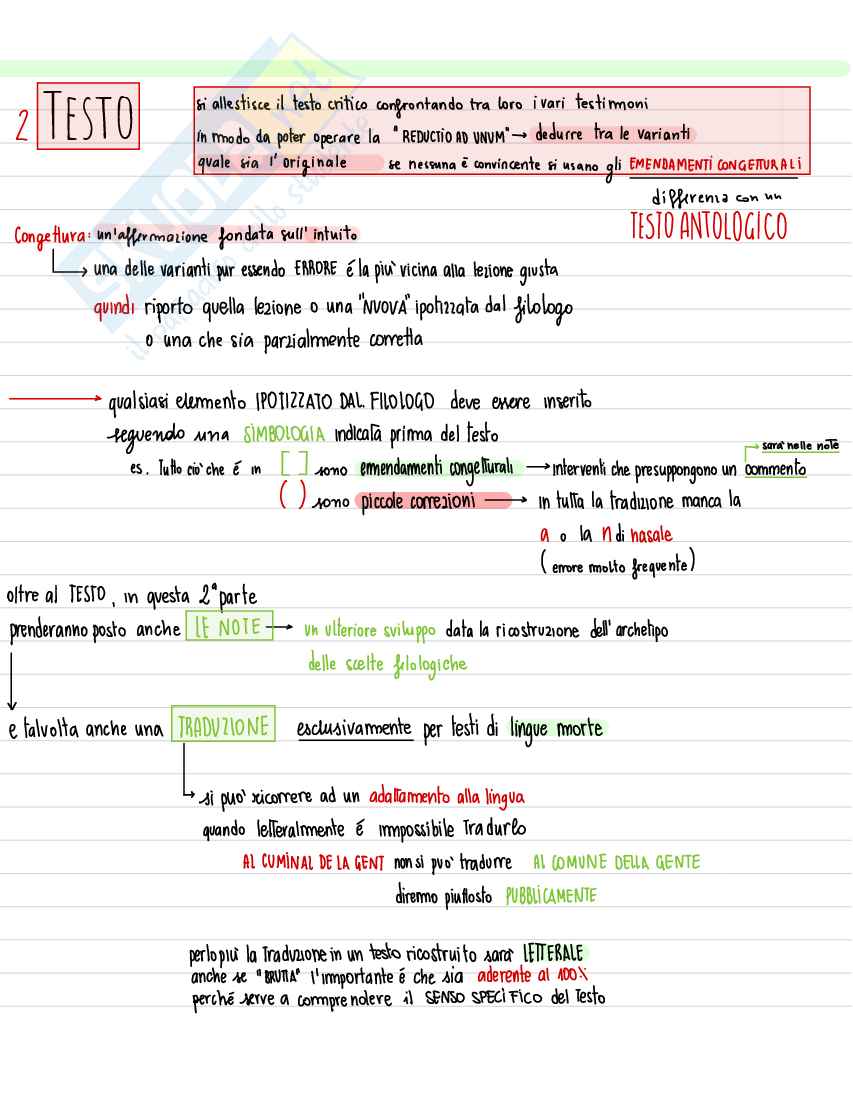 2 TESTO
si allestisce il testo critico confrontando tra loro i vari testimoni
in modo da poter operare la "REDUCTIO AD UNUM" → dedurre tra le varianti
quale sia l'originale se nessuna è convincente si usano gli EMENDAMENTI CONGETTURALI
differenza con un
TESTO ANTOLOGICO
Congettura: un'affermazione fondata sull'intuito
una delle varianti pur essendo ERRORE é la piu' vicina alla lezione giusta
quindi riporto quella lezione o una "NUOVA" ipotizzata dal filologo
o una che sia parzialmente corretta
qualsiasi elemento IPOTIZZATO DAL FILOLOGO deve essere inserito
seguendo una SIMBOLOGIA indicata prima del testo
sara' nelle note
es. Tutto cio' che é in [ ] sono emendamenti congetturali → interventi che presuppongono un commento
( ) sono piccole correzioni → in tutta la tradizione manca la
a o la n di nasale
(errore molto frequente)
oltre al TESTO, in questa 2ª parte
prenderanno posto anche LE NOTE → un ulteriore sviluppo data la ricostruzione dell'archetipo
delle scelte filologiche
e talvolta anche una TRADUZIONE esclusivamente per testi di lingue morte
si puo' ricorrere ad un adattamento alla lingua
quando letteralmente é impossibile tradurlo
AL CUMINAL DE LA GENT non si puo' tradurre AL COMUNE DELLA GENTE
diremo piuttosto PUBBLICAMENTE
perlopiu' la Traduzione in un testo ricostruito sara' LETTERALE
anche se "BRUTTA" l'importante é che sia aderente al 100%
perché serve a comprendere il SENSO SPECIFICO del Testo
SKUOLA.net
il paradiso dello studente